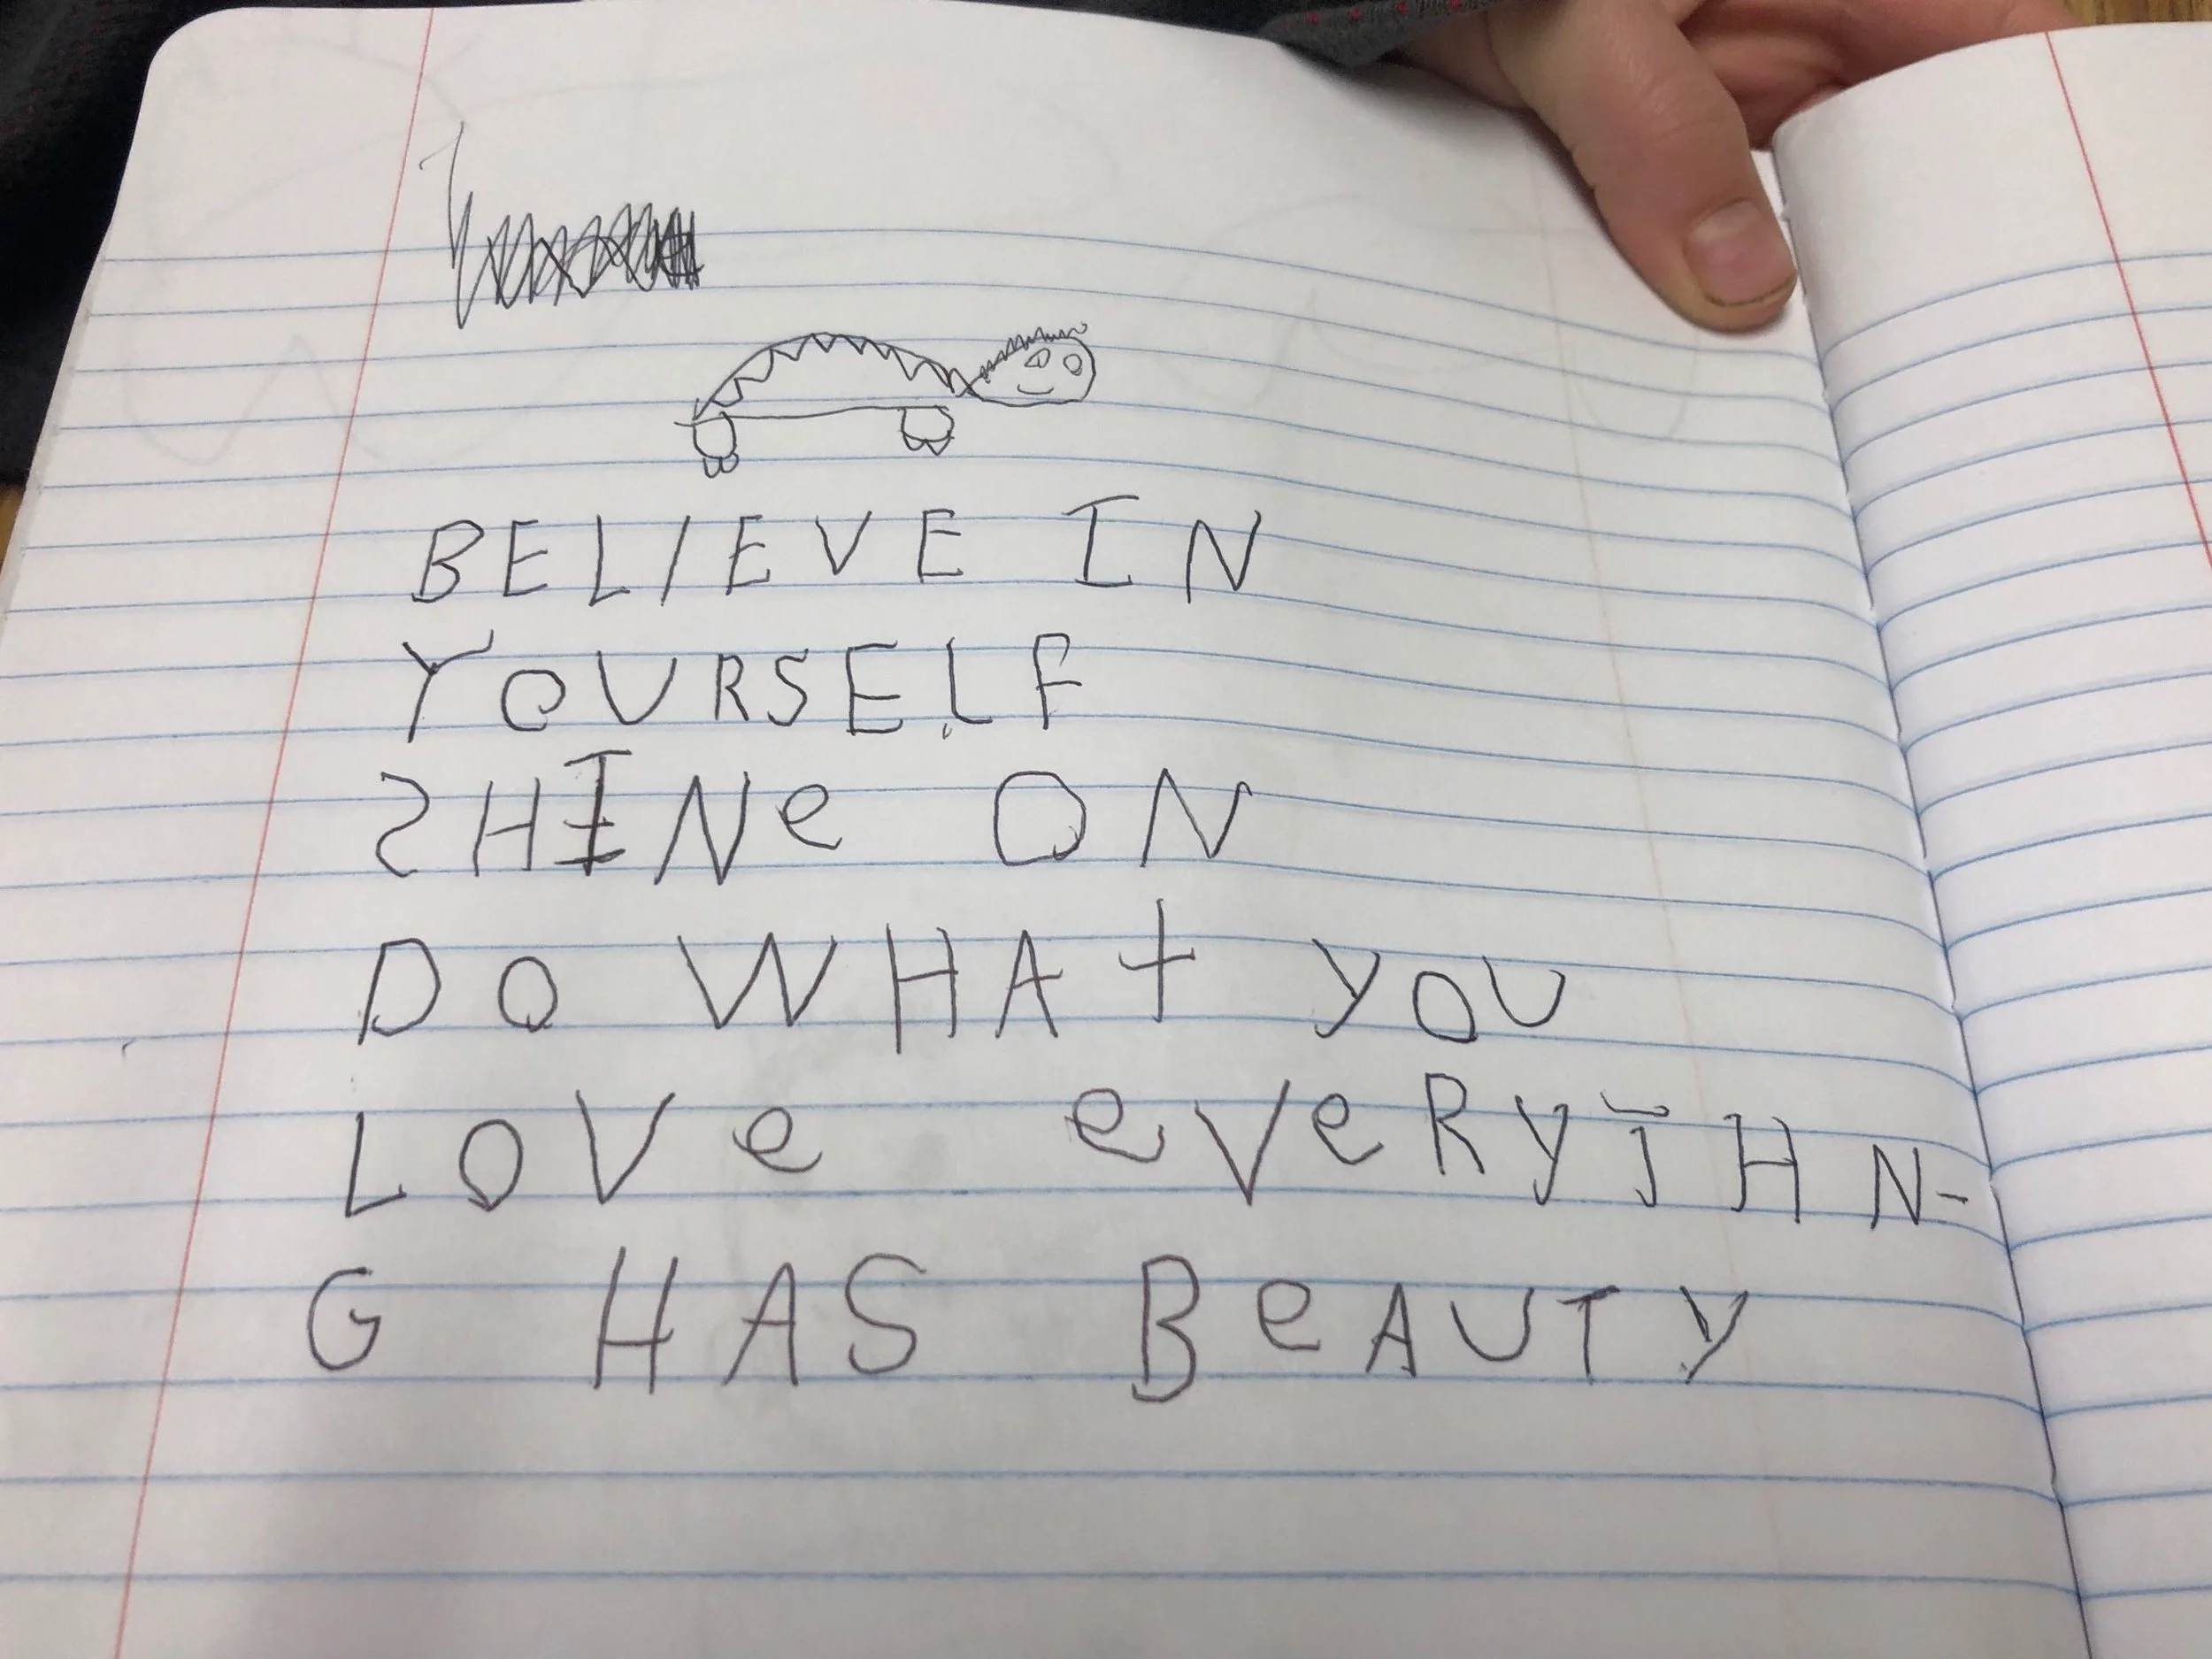 BELIEVE IN
YOURSELF
SHINe ON
DO WHAt YOU
LOVe eVeRYTHN-
G HAS BeAUTY